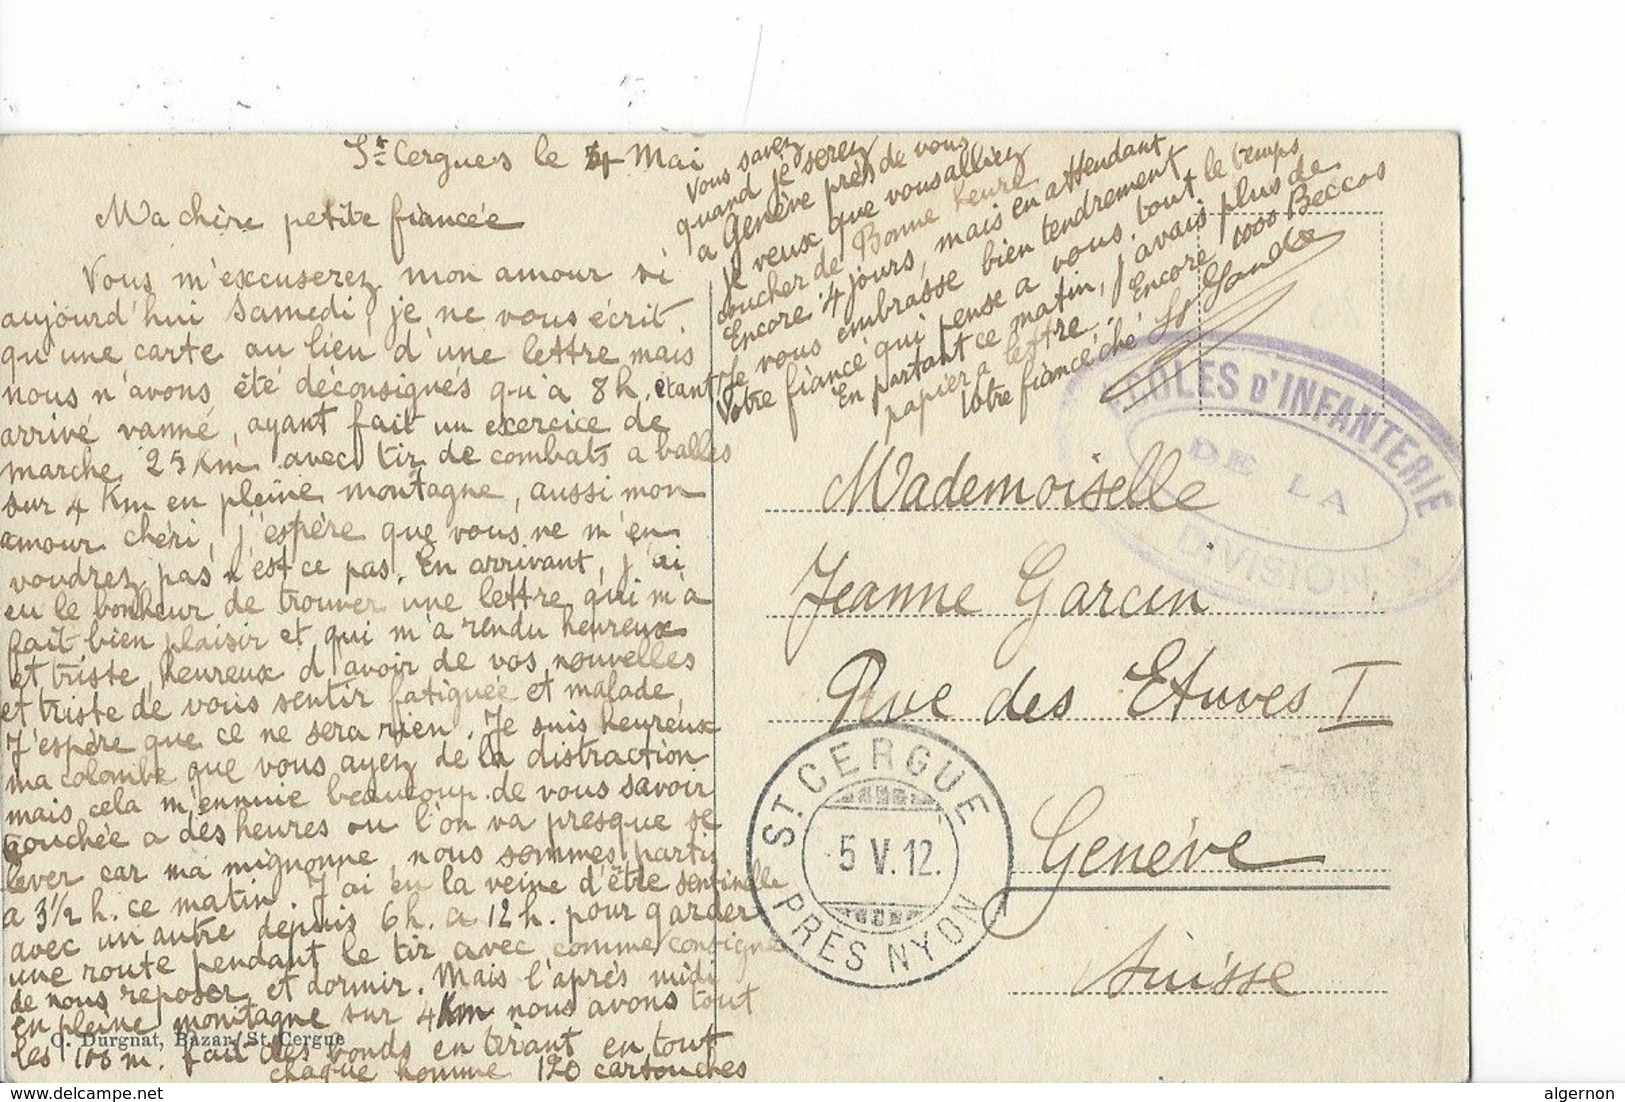 St Cergues le 4 Mai
Ma chère petite fiancée
Vous m'excuserez mon amour si
aujourd'hui Samedi je ne vous écrit
qu'une carte au lieu d'une lettre mais
nous n'avons été déconsignés qu'a 8 h. etant
arrivé vanné, ayant fait un exercice de
marche 25 Km avec tir de combats a balles
sur 4 Km en pleine montagne, aussi mon
amour chéri, j'espère que vous ne m'en
voudrez pas n'est ce pas. En arrivant, j'ai
eu le bonheur de trouver une lettre qui m'a
fait bien plaisir et qui m'a rendu heureux
et triste, heureux d'avoir de vos nouvelles
et triste de vous sentir fatiguée et malade,
J'espère que ce ne sera rien. Je suis heureux
ma colombe que vous ayez de la distraction
mais cela m'ennuie beaucoup de vous savoir
couchée a des heures ou l'on va presque se
lever car ma mignonne, nous sommes partis
a 3½ h. ce matin. J'ai eu la veine d'être sentinelle
avec un autre depuis 6 h. a 12 h. pour garder
une route pendant le tir avec comme consigne
de nous reposer et dormir. Mais l'après midi
en pleine montagne sur 4 Km nous avons tout
les 100 m. fait des bonds en tirant en tout
chaque homme 120 cartouches
O. Durgnat, Bazar, St. Cergue
Vous savez
quand je serez
a Genève près de vous
je veux que vous alliez
coucher de Bonne heure
Encore 4 jours, mais en attendant
Je vous embrasse bien tendrement
Votre fiancé qui pense a vous tout le temps
En partant ce matin, j'avais plus de
papier a lettre. Encore 1000 Beccos
Votre fiancé ché
ECOLES D'INFANTERIE
DE LA
DIVISION
Mademoiselle
Jeanne Garcin
Rue des Etuves 1
Genève
Suisse
ST. CERGUE
5 V. 12.
PRÈS NYON
algernon